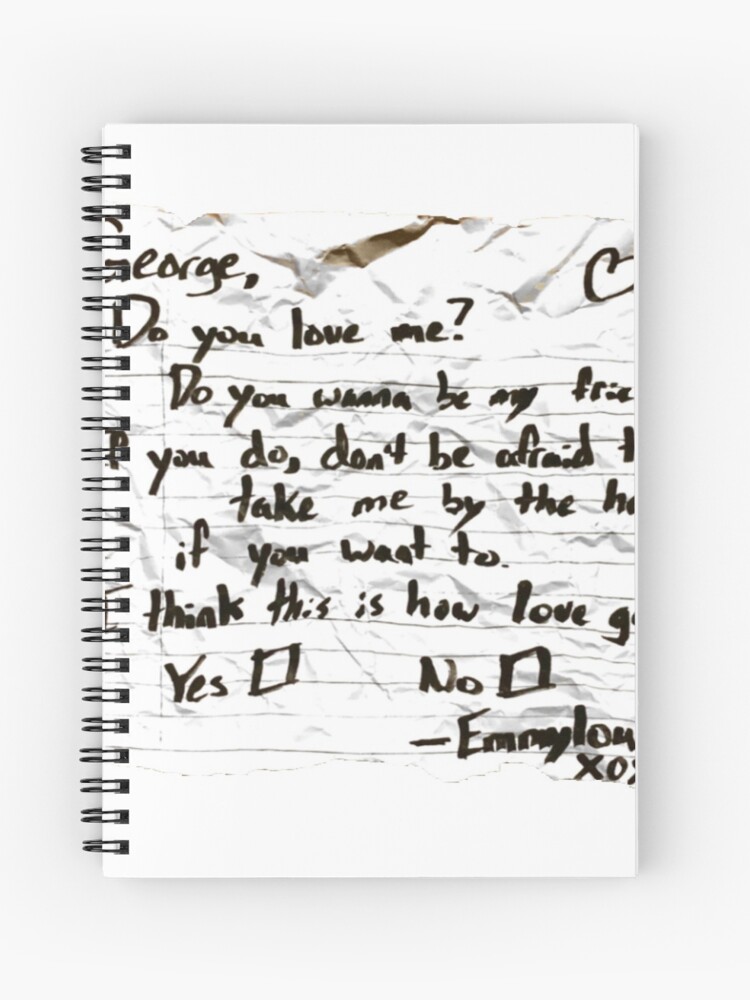 George,
Do you love me?
Do you wanna be my frie
If you do, don't be afraid t
take me by the ha
if you want to.
I think this is how love go
Yes No
—Emmylou
xox